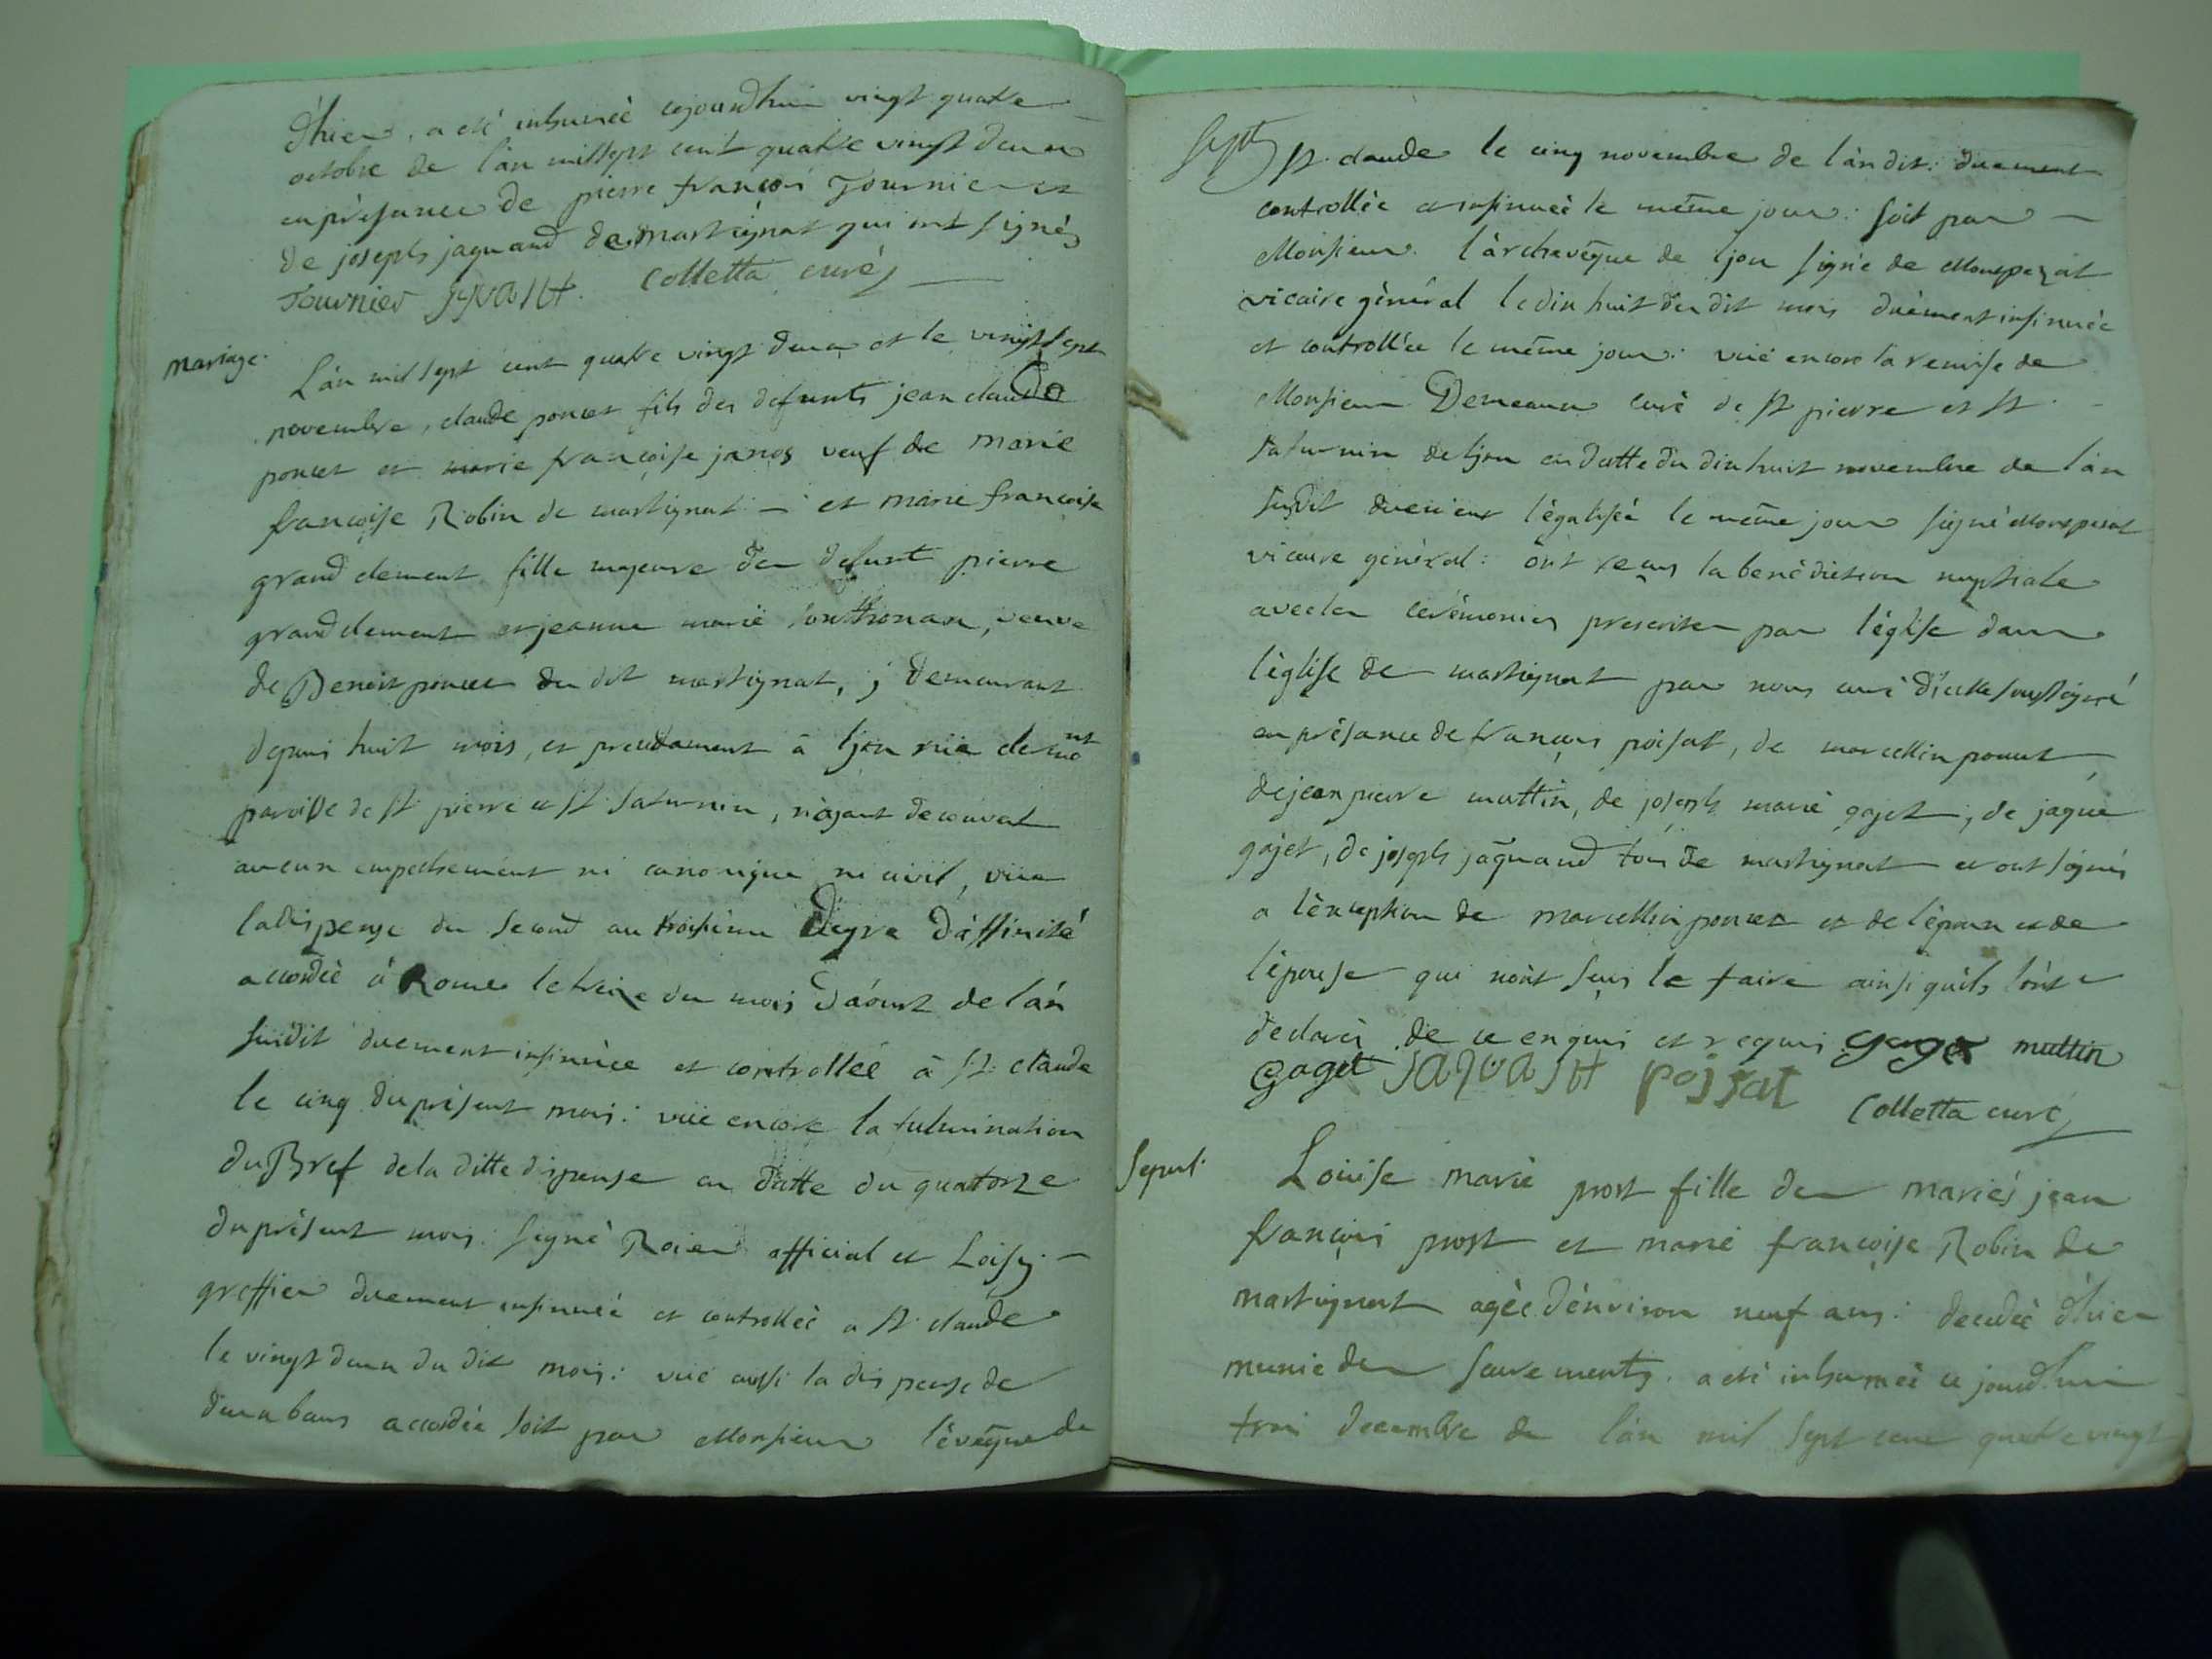 d'hier, a eté inhumèè cejourdhui vingt quatre
octobre de l'àn mil sept cent quatre vingt deux
en prèsance de pierre françois Tournier et
de joseph jaquand de martignat qui ont signés
Tournier colletta curé
mariage. L'àn mil sept cent quatre vingt deux et le vingt sept
novembre, claude poncet fils des defunts jean claude
poncet et marie françoise janos veuf de marie
françoise Robin de martignat - et marie françoise
grand clement fille majeure du defunt pierre
grand clement et jeanne marie sonthonax, veuve
de Benoit poncet du dit martignat, j demeurant
depuis huit mois, et precedament à ljon rüe clermont
paroisse de st pierre et st saturnin, n'ajant decouvert
aucun empechement ni canonique ni civil, vüe
la dispense du second au troisieme degre d'àffinité
accordèè à Rome le treize du mois d'aoust de l'án
susdit duement insinuèe et controllèè à st claude
le cinq du présent mois: vüe encore la fulmination
du Bref de la ditte dispense en datte du quatorze
du présent mois. signé Roier official et Loisy -
greffier duement insinueé et controlleè a st claude
le vingt deux du dit mois: vüe aussi la dispense de
deux bans accordèe soit par Monsieur l'évêque de
st. claude le cinq novembre de l'àn dit: duement
controllèe et insinueè le même jour: soit par -
Monsieur l'àrchevêque de ljon signé de Monspezat
vicaire gènéral le dix huit du dit mois duèment insinuèe
et controllée le même jour: vüe encore la remise de
Monsieur Demeaux curè de st pierre et st -
saturnin de ljon en datte du dix huit novembre de l'àn
susdit duement légaliséè le même jour signé Monspesat
vicaire gènèral: ont reçus la benèdiction nuptiale
avec les cerémonies prescrites par l'église dans
l'èglise de martignat par nous curé d'icelle soussigné
en présance de françois poisat, de marcellin poncet
de jean pierre muttin, de joseph marie gajet, de jaque
gajet, de joseph jaquand tous de martignat et ont signés
a l'èxception de marcellin poncet et de l'époux et de
l'épouse qui n'ont seus le faire ainsi qu'ils l'ont
declaré de ce enquis et requis muttin
gaget poisat
colletta curé
sepul. Loüise marie prost fille des mariés jean
françois prost et marie françoise Robin de
martignat agèe d'énviron neuf ans: decedèè d'hier
munie des sacrements. a eté inhumèè ce jourd'hui
trois decembre de l'àn mil sept cent quatre vingt